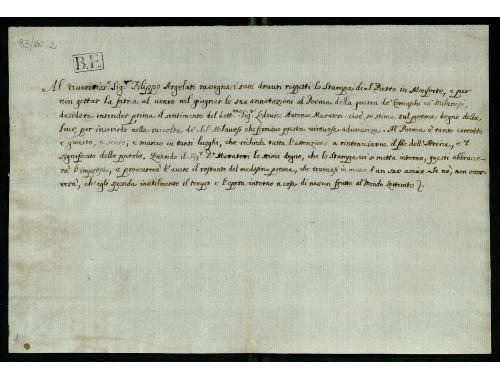 83/60.2
B.E
Al riveritiss.º Sig.r Filippo Argelati rassegna i suoi dovuti rispetti lo Stampa di S. Pietro in Monforte, e per
non gettar la fatica al vento nel giugner le sue annotazioni al Poema della guerra de' Comaschi co' Milanesi,
desidera intender prima il sentimento del dott.mo Sig.r Lodovico Antonio Muratori, cioè, se stima tal poema degno della
luce, per inserirlo nella raccolta de' SS.i Milanesi che formano questa virtuosa adunanza. Il Poema è tanto corrotto
e guasto, e oscuro, e manco in tanti luoghi, che richiede tutta l'attenzione a rintracciarne il filo dell'Istoria, e 'l
significato delle parole. Quando il Sig.r D.r Muratori lo stimi degno, che lo Stampa vi si metta intorno, questi abbracce-
rà l'impresa, e procurerà d'avere il restante del medesimo poema, che trovasi in mano d'un suo amico. Se no, non occor-
rerà, ch'egli spenda inutilmente il tempo e l'opera intorno a cosa di nessun frutto al Mondo Letterato